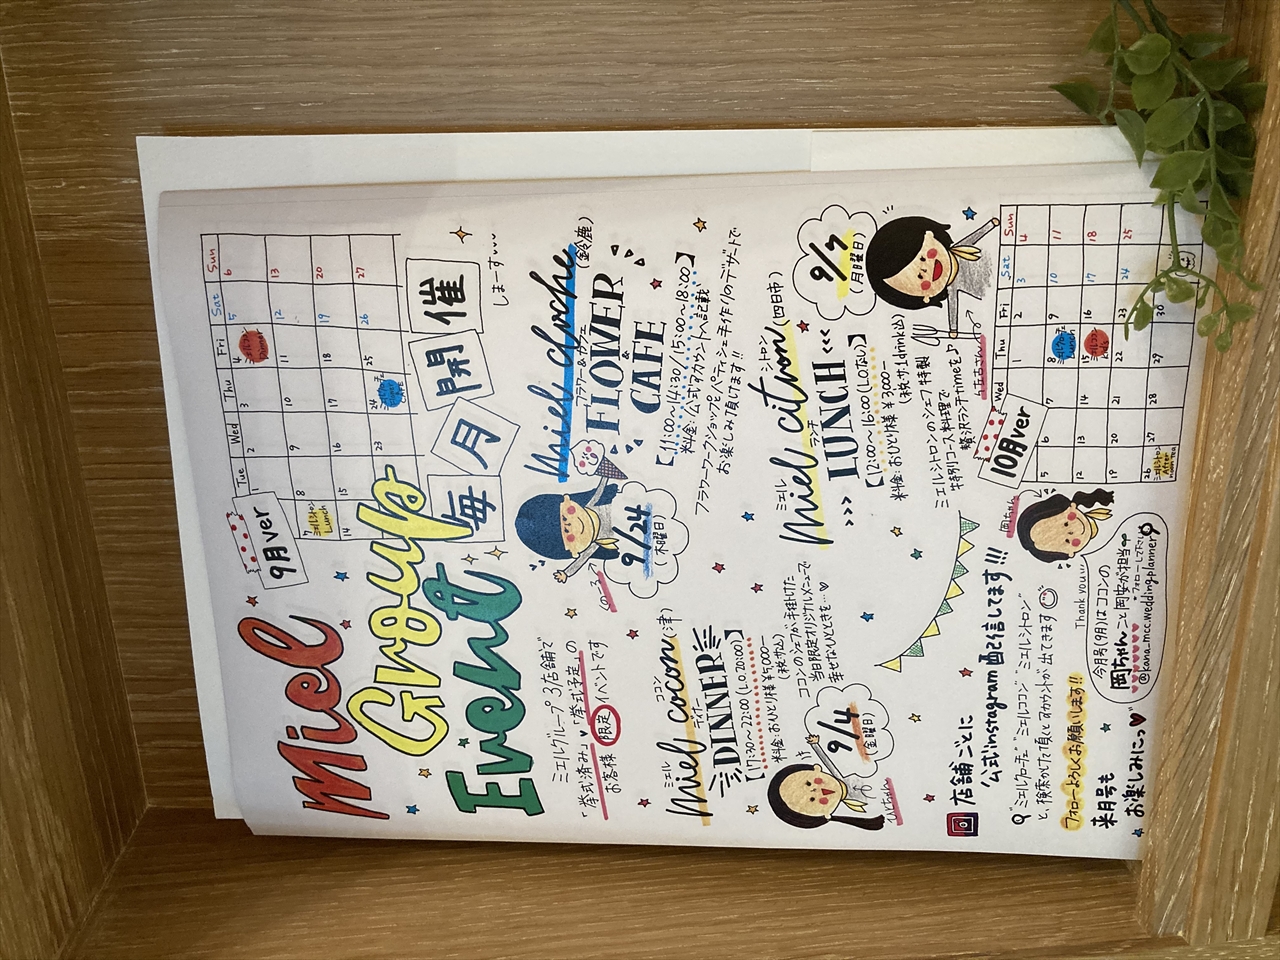 Miel
Group
Event
9月ver
Tue Wed Thu Fri Sat Sun
2 3 4 5 6
ミエルココン Dinner
7 8 9 10 11 12 13
ミエルシトロン Lunch
14 15 16 17 18 19 20
23 24 25 26 27
CAFE
毎月開催
しまーす
ミエルグループ3店舗で
「挙式済み」♥「挙式予定」の
お客様限定イベントです
のーろ
9/24
(木曜日)
miel cloche (鈴鹿)
フラワー&カフェ
FLOWER
&
CAFE
【11:00〜14:30/15:00〜18:00】
料金:公式アカウントへ記載
フラワーワークショップとパティシエ手作りのデザートで
お楽しみ頂けます!!
ミエル ココン
miel cocon (津)
ディナー
DINNER
【17:30〜22:00(L.O 20:00)】
料金:おひとり様¥5,000-
(税サ込)
ココンのシェフが手掛けた
当日限定オリジナルメニューで
幸せなひとときを…♥
9/4
(金曜日)
ミエル シトロン
miel citron (四日市)
ランチ
>>> LUNCH <<<
【12:00〜16:00(L.Oなし)】
料金:おひとり様¥3,000-
(税・サ・1drink込)
ミエルシトロンのシェフ特製
特別コース料理で
贅沢ランチtime♪
9/7
(月曜日)
店舗ごとに
公式instagram配信してます!!!
"ミエルクローチェ" "ミエルココン" "ミエルシトロン"
と、検索かけて頂くとアカウントが出てきます
フォローよろしくお願いします!!
来月号も
お楽しみにっ♥
岡ちゃん
Thank you
今月号(9月)はココンの
岡ちゃんこと岡安が担当
フォローして下さい
@kana.mcc.weddingplanner
10月ver
Wed Sat Sun
1 2 3 4
5 6 7 8 9 10 11
ミエルクローチェ Lunch
12 13 14 15 16 17 18
ミエルココン Kids
19 20 21 22 23 24 25
26 27 28 29 30
ミエルシトロン After noon tea